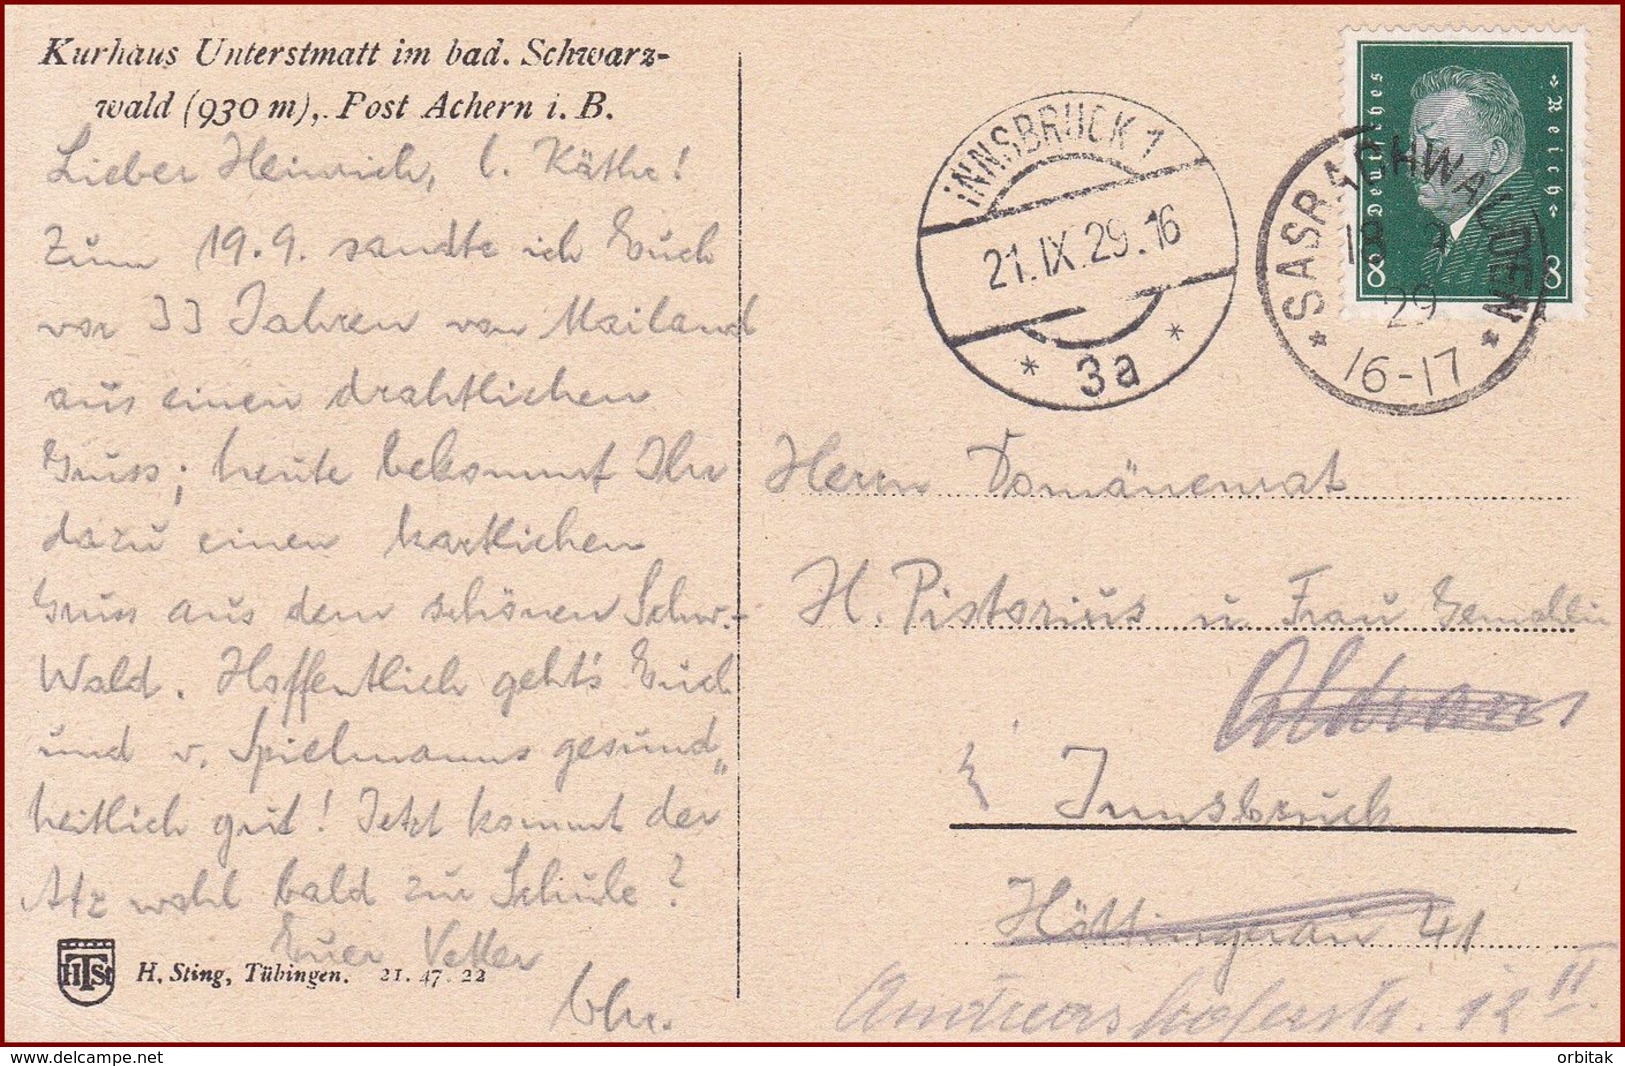 Kurhaus Unterstmatt im bad. Schwarz-
wald (930 m), Post Achern i. B.
Lieber Heinrich, l. Käthe!
Zum 19.9. sandte ich Euch
vor 33 Jahren von Mailand
aus einen drahtlichen
Gruss; heute bekommt Ihr
dazu einen kartlichen
Gruss aus dem schönen Schw.-
Wald. Hoffentlich geht's Euch
und v. Spielmanns gesund„
heitlich gut! Jetzt kommt der
Atz wohl bald zur Schule?
Euer Vetter
H. Sting, Tübingen. 21. 47. 22
HTSt
INNSBRUCK 1
21.IX.29.16
* 3a *
Deutsches Reich
8 8
* SASBACHWALDEN *
18 9
29
16-17
Herrn Domänenrat
H. Pistorius u. Frau Gemahlin
Aldrans
Innsbruck
Höttingerau 41
Andreas hoferstr. 12 II.
www.delcampe.net
orbitak